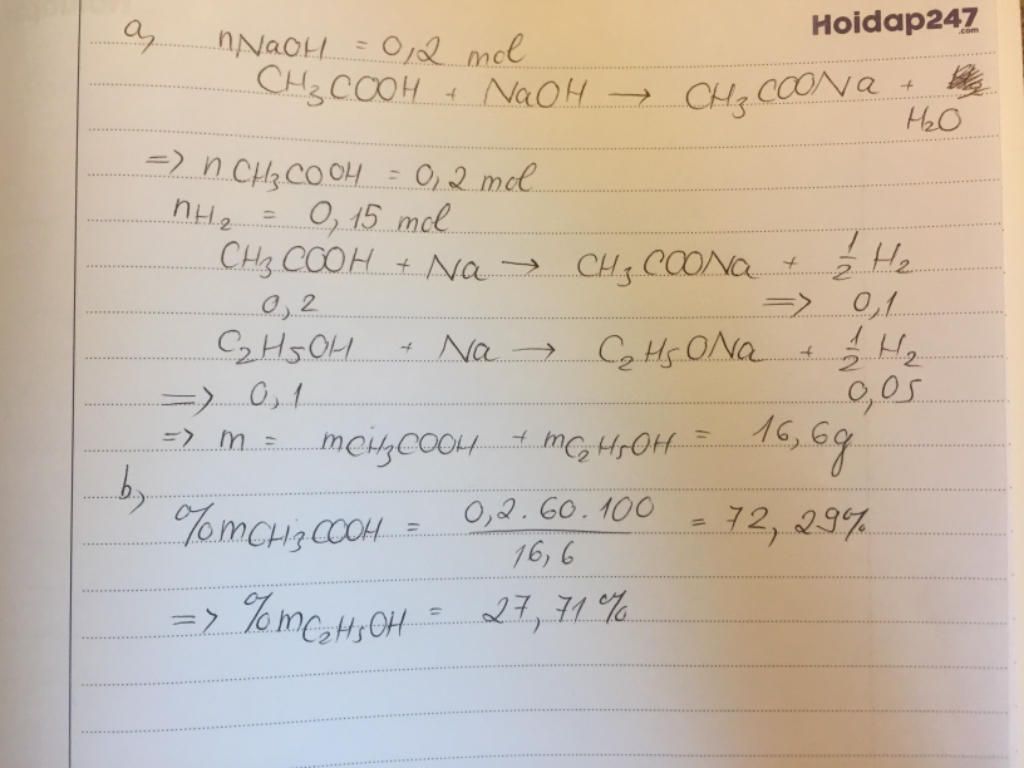 Hoidap247
.com
a, nNaOH = 0,2 mol
CH3COOH + NaOH → CH3COONa +
H2O
=> nCH3COOH = 0,2 mol
nH2 = 0,15 mol
CH3COOH + Na → CH3COONa + 1/2 H2
0,2 => 0,1
C2H5OH + Na → C2H5ONa + 1/2 H2
=> 0,1 0,05
=> m = mCH3COOH + mC2H5OH = 16,6g
b,
%mCH3COOH = 0,2.60.100 / 16,6 = 72,29%
=> %mC2H5OH = 27,71%